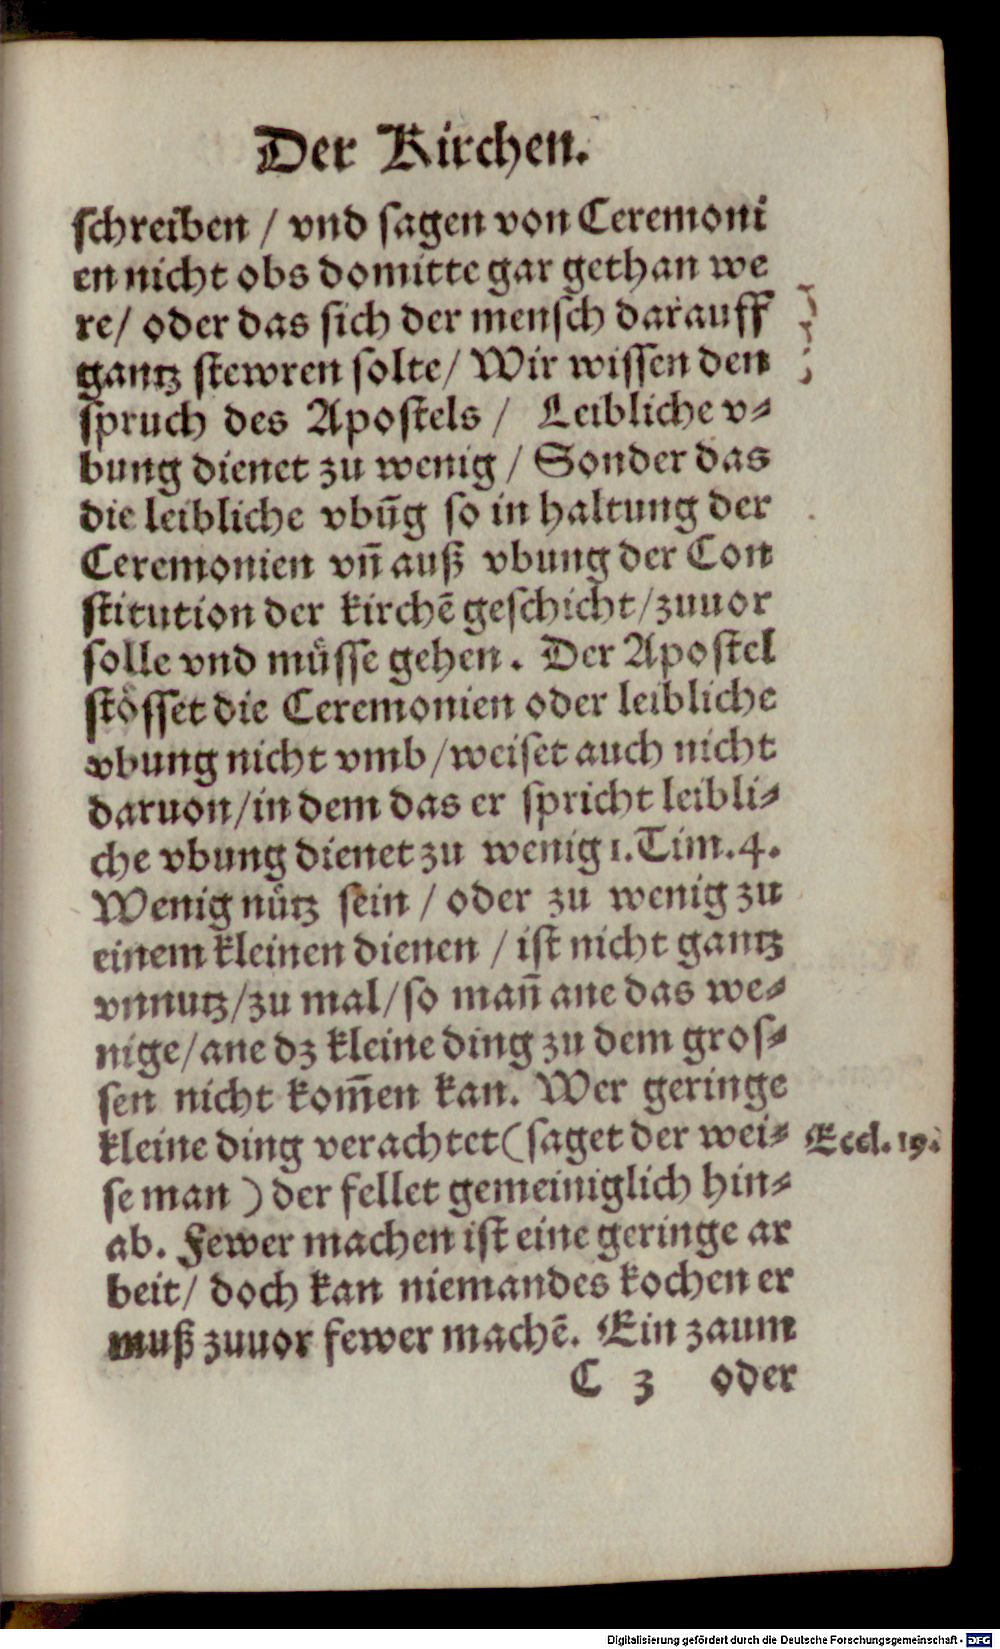 Der Kirchen.
schreiben / vnd sagen von Ceremoni
en nicht obs domitte gar gethan we
re/ oder das sich der mensch darauff
gantz stewren solte/ Wir wissen den
spruch des Apostels / Leibliche v⸗
bung dienet zu wenig / Sonder das
die leibliche vbūg so in haltung der
Ceremonien vn̄ auß vbung der Con
stitution der kirchē geschicht/zuuor
solle vnd müsse gehen. Der Apostel
stösset die Ceremonien oder leibliche
vbung nicht vmb/weiset auch nicht
daruon/in dem das er spricht leibli⸗
che vbung dienet zu wenig 1.Tim.4.
Wenig nütz sein / oder zu wenig zu
einem kleinen dienen / ist nicht gantz
vnnutz/zu mal/so man̄ ane das we⸗
nige/ane dz kleine ding zu dem gros⸗
sen nicht kom̄en kan. Wer geringe
kleine ding verachtet(saget der wei⸗ Eccl.19.
se man ) der fellet gemeiniglich hin⸗
ab. Fewer machen ist eine geringe ar
beit/ doch kan niemandes kochen er
muß zuuor fewer machē. Ein zaum
C 3 oder
Digitalisierung gefördert durch die Deutsche Forschungsgemeinschaft - DFG